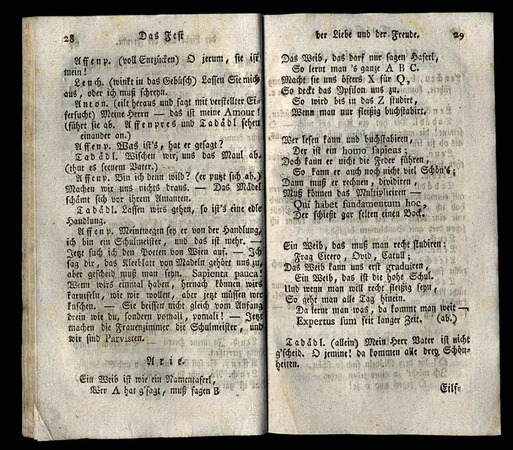 28 Das Fest
Affenp. (voll Entzücken) O jerum, sie ist
mein!
Lench. (winkt in das Gebüsch) Lassen Sie mich
aus, oder ich muß schreyn.
Anton. (eilt heraus und sagt mit verstellter Ei-
fersucht) Meine Herrn — das ist meine Amour!
(führt sie ab. Affenpreis und Tadädl sehen
einander an.)
Affenp. Was ist's, hat er gesagt?
Tadädl. Wischen wir uns das Maul ab.
(thut es seinem Vater.)
Affenp. Bin ich denn wild? (er putzt sich ab.)
Machen wir uns nichts draus. — Das Mädel
schämt sich vor ihrem Amanten.
Tadädl. Lassen wirs gehen, so ist's eine edle
Handlung.
Affenp. Meintwegen sey er von der Handlung,
ich bin ein Schulmeister, und das ist mehr. —
Jetzt such ich den Poeten von Wien auf. — Ich
sag dir, das Kleeblatt von Madeln gehört uns zu,
aber gescheid muß man seyn. Sapienta pauca!
Wenn wirs einmal haben, hernach können wirs
karnifeln, wie wir wollen, aber jetzt müssen wir
kuschen. — Sie beisset nicht gleich vom Anfang
drein wie du, sondern vomali, vomali! — Jetzt
machen die Frauenzimmer die Schulmeister, und
wir sind Parvisten. —
Arie.
Ein Weib ist wie ein Namentaferl,
Wer A hat g'sagt, muß sagen B
der Liebe und der Freude. 29
Das Weib, das darf nur sagen Haferl,
So lernt man 's ganze A B C.
Macht sie uns öfters X für Q,
So deckt das Ypsilon uns zu.
So wird bis in das Z studirt,
Wenn man nur fleißig buchstabirt.
Wer lesen kann, und buchstabiren,
Der ist ein homo sapiens;
Doch kann er nicht die Feder führen,
So kann er auch noch nicht viel Schön's;
Dann muß er rechnen, dividiren,
Muß können das Multipliciren —
Qui habet fundamentum hoc,
Der schießt gar selten einen Bock.
Ein Weib, das muß man recht studiren:
Frag Cicero, Ovid, Catull;
Das Weib kann uns erst graduiren,
Ein Weib, das ist die hohe Schul.
Und wenn man will recht fleißig seyn,
So geht man alle Tag hinein.
Da lernt man was, da kommt man weit —
Expertus sum seit langer Zeit. (ab.)
Tadädl. (allein) Mein Herr Vater ist nicht
g'scheid. O jemine! da kommen alle drey Schön-
heiten.
Eilf-